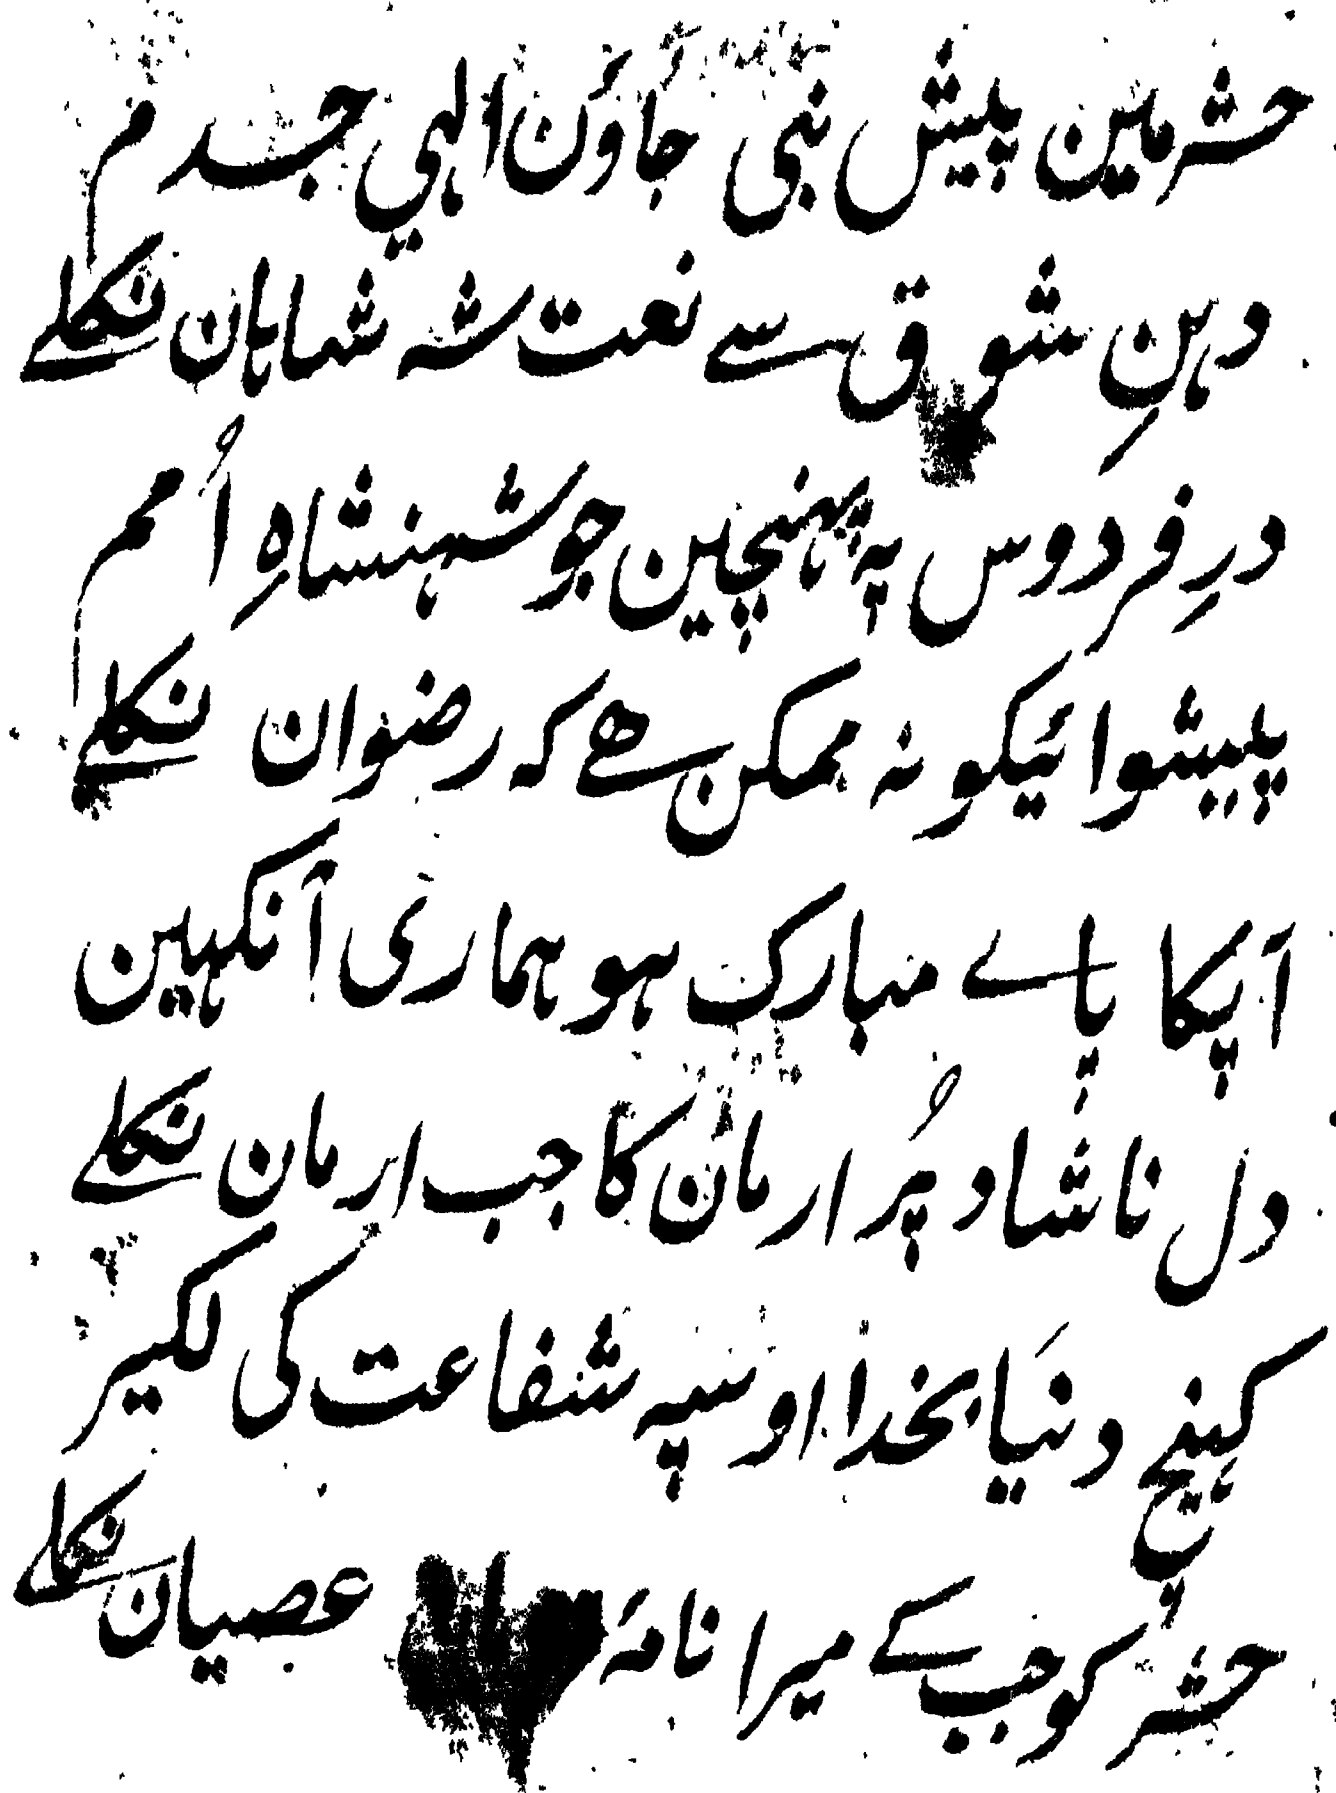 حشر مین پیش نبی جاؤن الہی جسدم
دہنِ شوق سے نعت شہ شاہان نکلے
درِ فردوس پہ پہنچین جو شہنشاہِ اُمم
پیشوائیکو نہ ممکن ہے کہ رضوان نکلے
آپکا پاے مبارک ہو ہماری آنکہین
دل ناشاد پُر ارمان کا جب ارمان نکلے
کہنچ دنیَا بخدا اوسپہ شفاعت کی لکیر
حشر کو جب کے میرا نامۂ عصیان نکلے